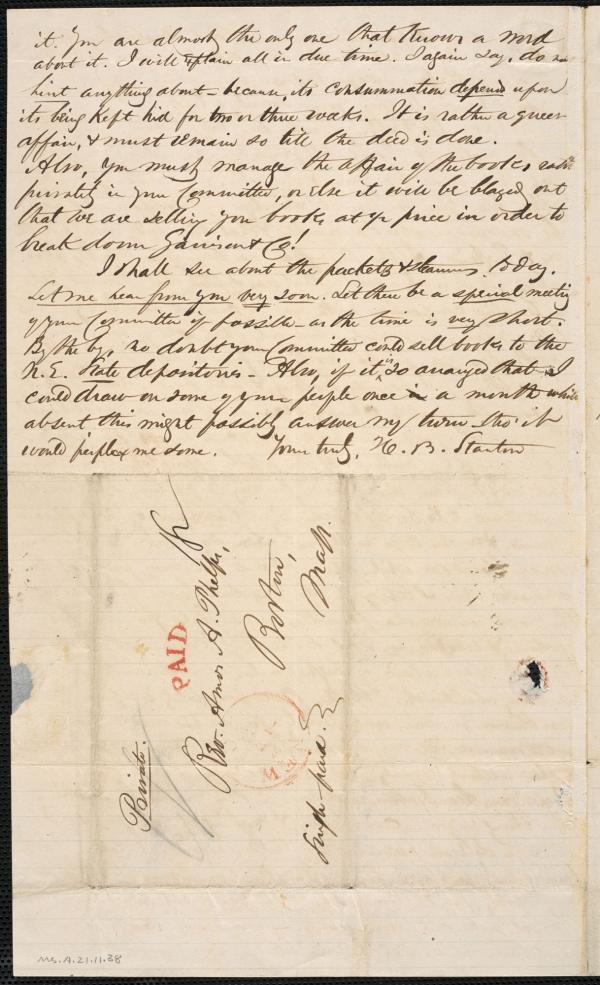 it. You are almost the only one that knows a word
about it. I will explain all in due time. I again say, do not
hint anything about – because, its consummation depends upon
its being kept hid for two or three weeks. It is rather a queer
affair, & must remain so till the deed is done.
Also, you must manage the affair of the books
privately in your Committee, or else it will be blazed out
that we are selling you books at ½ price in order to
break down Garrison & Co!
I shall see about the packets & steamers today.
Let me hear from you very soon. Let there be a special meeting
of your Committee if possible – as the time is very short.
By the by, no doubt your Committee could sell books to the
N. E. State depositories – Also, if it is so arranged that I
could draw on some of your people once in a month while
absent this might possibly answer my turn – tho' it
would perplex me some. Yours truly, H. B. Stanton
Private.
PAID
Rev. Amos A. Phelps,
Boston,
Mass.
Single paid.
MS.A.21.11.38